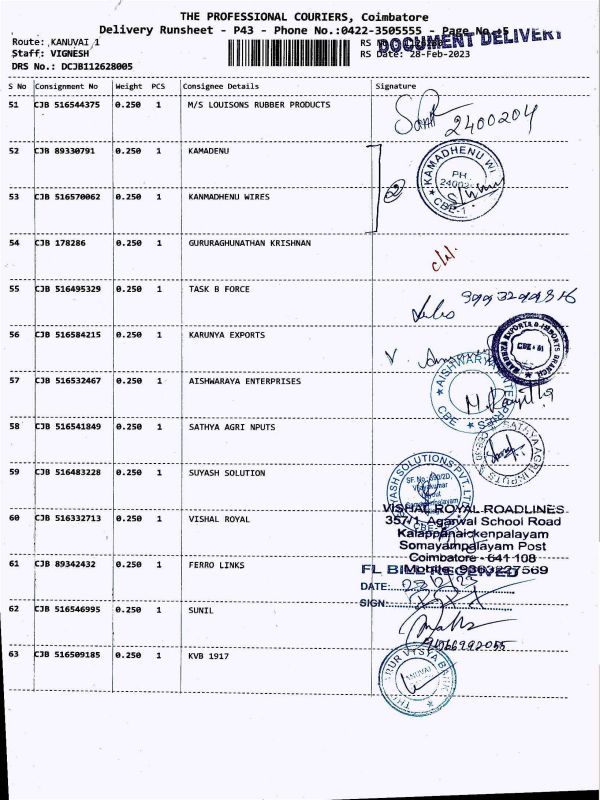 THE PROFESSIONAL COURIERS, Coimbatore
Delivery Runsheet - P43 - Phone No.:0422-3505555 - Page No.:5
DOCUMENT DELIVERY
Route: KANUVAI 1
RS No
Staff: VIGNESH
RS Date: 28-Feb-2023
DRS No.: DCJBI12628005
S No Consignment No Weight PCS Consignee Details Signature
51 CJB 516544375 0.250 1 M/S LOUISONS RUBBER PRODUCTS
2400204
52 CJB 89330791 0.250 1 KAMADENU
KAMADHENU WI
PH
CBE-1
53 CJB 516570062 0.250 1 KANMADHENU WIRES
54 CJB 178286 0.250 1 GURURAGHUNATHAN KRISHNAN
55 CJB 516495329 0.250 1 TASK B FORCE
56 CJB 516584215 0.250 1 KARUNYA EXPORTS
KARUNYA EXPORTS & IMPORTS BRANCH
57 CJB 516532467 0.250 1 AISHWARAYA ENTERPRISES
AISHWARYA ENTERPRISES
CBE
58 CJB 516541849 0.250 1 SATHYA AGRI NPUTS
SATHYA AGRI INPUTS
59 CJB 516483228 0.250 1 SUYASH SOLUTION
SUYASH SOLUTIONS PVT. LTD
60 CJB 516332713 0.250 1 VISHAL ROYAL
VISHAL ROYAL ROADLINES
357/1, Agarwal School Road
Kalappanaickenpalayam
Somayampalayam Post
Coimbatore - 641 108
Mobile: 9363227569
61 CJB 89342432 0.250 1 FERRO LINKS
FL BILL RECEIVED
DATE: 28/2/23
SIGN:
62 CJB 516546995 0.250 1 SUNIL
63 CJB 516509185 0.250 1 KVB 1917